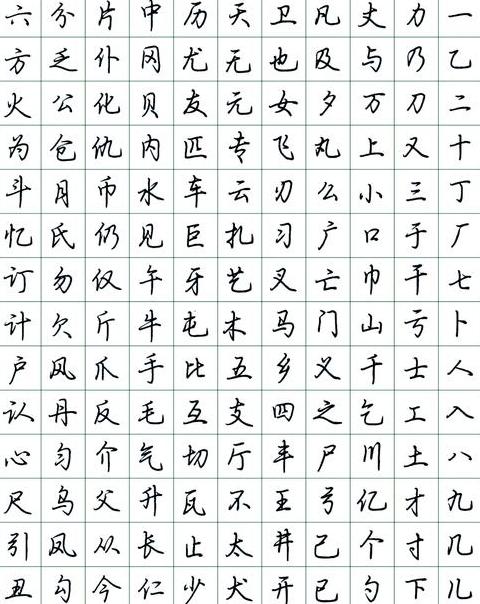 一乙二十丁厂七卜人入八九几儿
力乃刀又三于干亏士工土才寸下
丈与万上小口巾山千乞川亿个勺
凡及夕丸么广亡门义之尸弓己已
卫也女飞刃习叉马乡四丰王井开
天无元专云扎艺木五支厅不太犬
历尤友匹车巨牙屯比互切瓦止少
中冈贝内水见午牛手毛气升长仁
片仆化仇币仍仅斤爪反介父从今
分乏公仓月氏勿欠风丹匀乌凤勾
六方火为斗忆订计户认心尺引丑